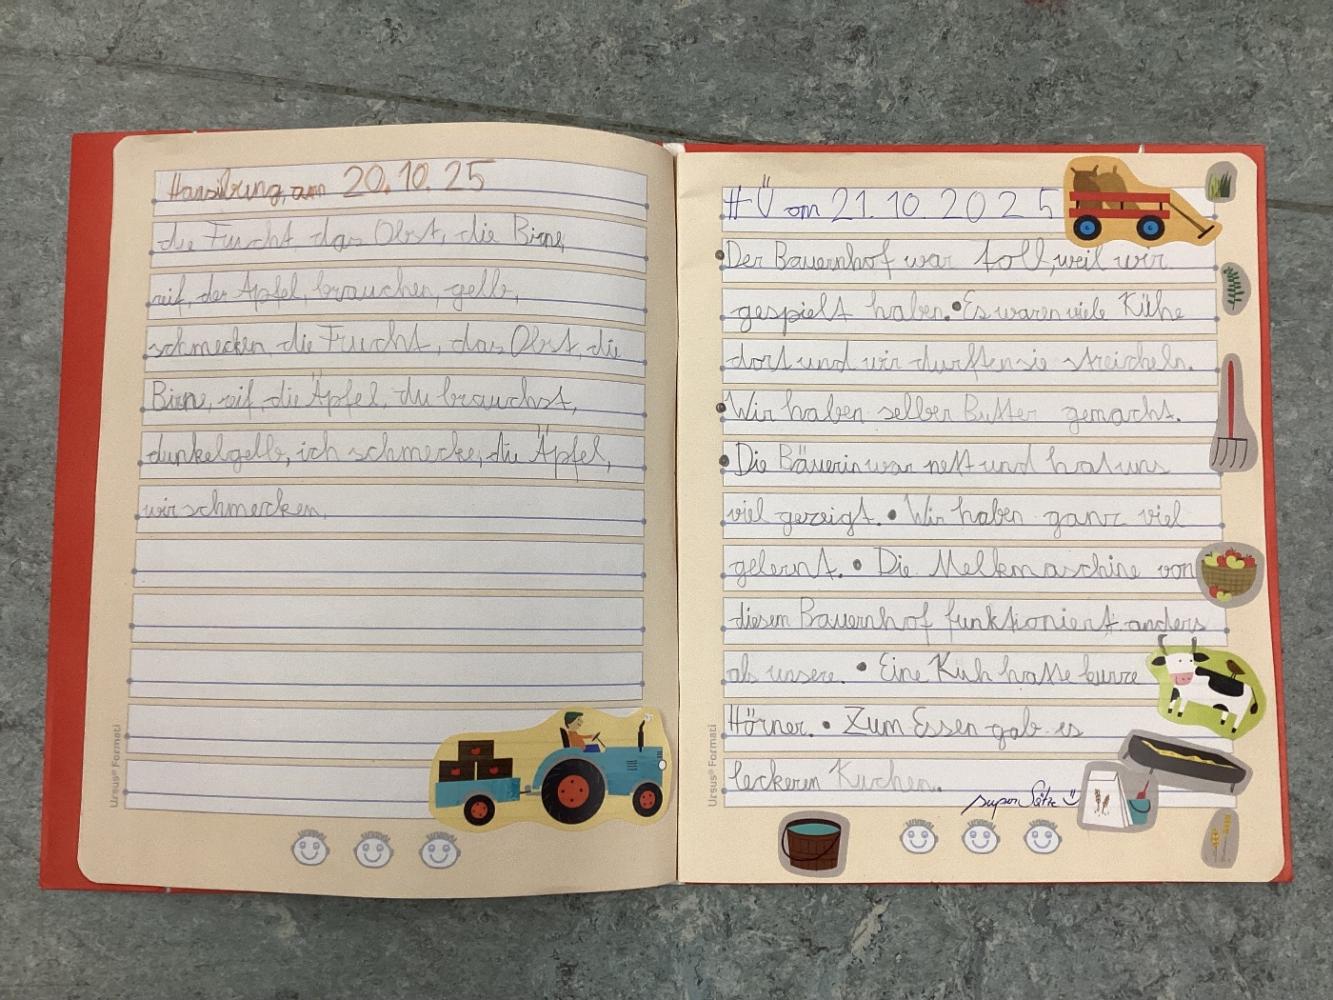 Hausübung, am 20.10.25
die Frucht, das Obst, die Birne,
reif, der Apfel, brauchen, gelb,
schmecken, die Frucht, das Obst, die
Birne, reif, die Äpfel, du brauchst,
dunkelgelb, ich schmecke, die Äpfel,
wir schmecken,
Ursus® Formati
HÜ am 21.10.2025
Der Bauernhof war toll, weil wir
gespielt haben. Es waren viele Kühe
dort und wir durften sie streicheln.
Wir haben selber Butter gemacht.
Die Bäuerin war nett und hat uns
viel gezeigt. Wir haben ganz viel
gelernt. Die Melkmaschine von
diesem Bauernhof funktioniert anders
als unsere. Eine Kuh hatte kurze
Hörner. Zum Essen gab es
leckeren Kuchen.
super Sätze
Ursus® Formati